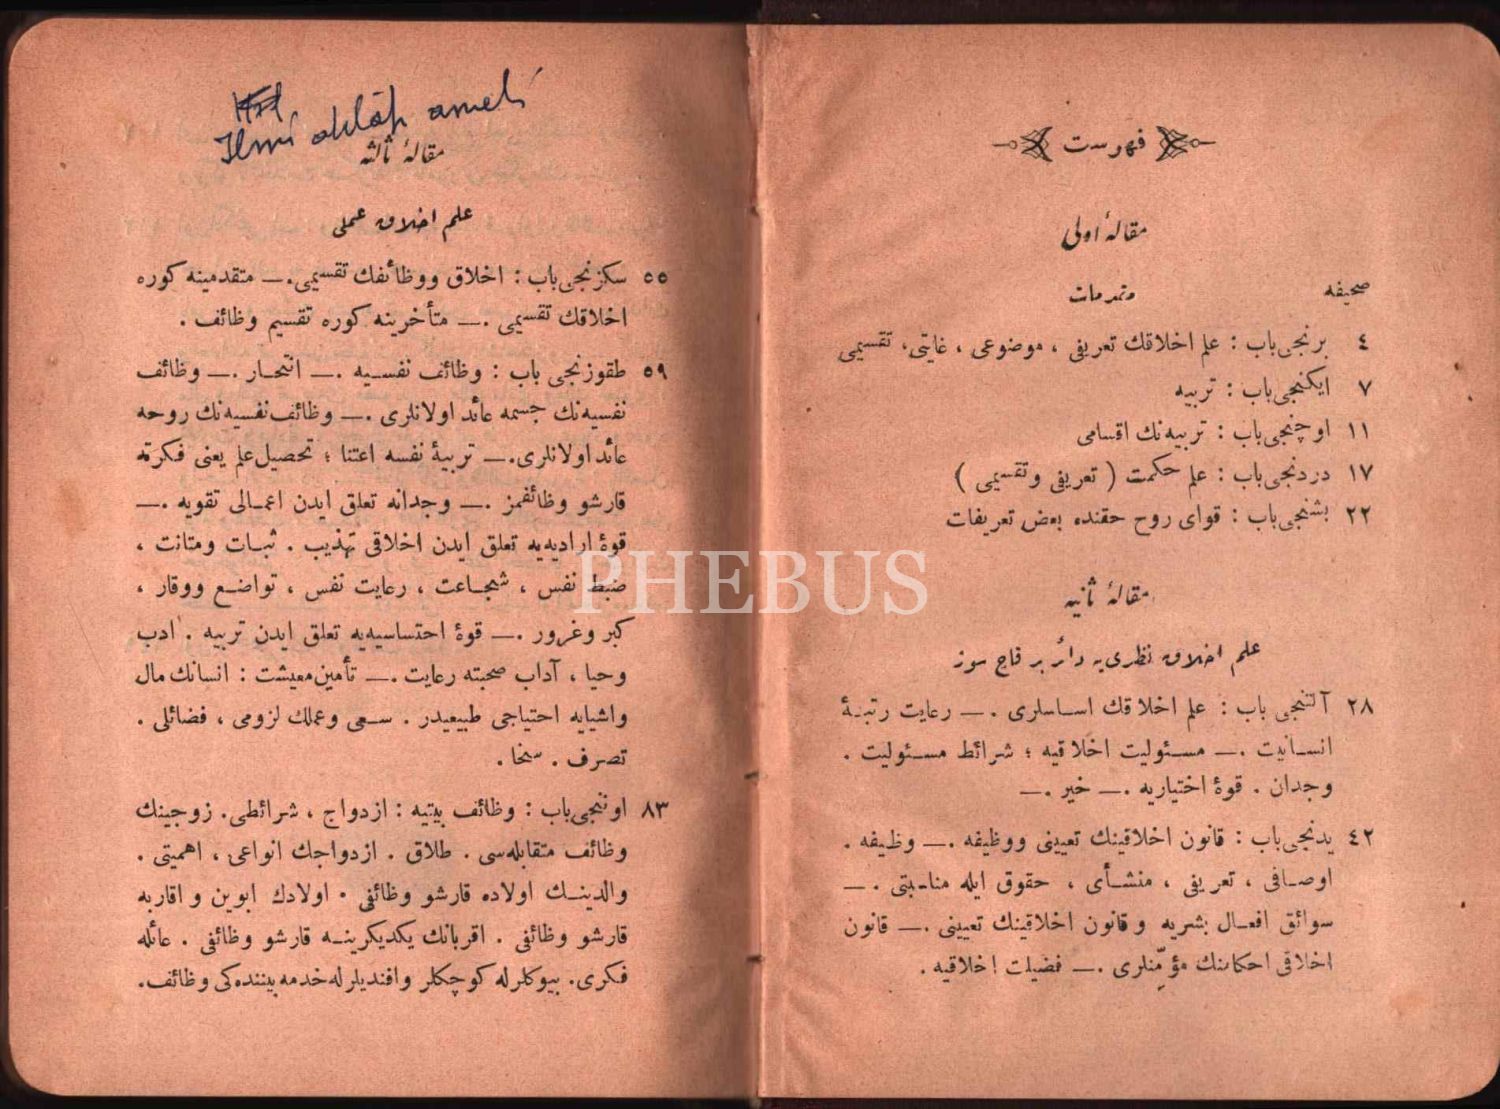 فهرست
مقالهٔ اولی
صحیفه
مقدمات
٤ برنجی باب : علم اخلاقك تعریفی ، موضوعی ، غایتی ، تقسیمی
٧ ایکنجی باب : تربیه
١١ اوچنجی باب : تربیه‌نك اقسامی
١٧ دردنجی باب : علم حکمت ( تعریفی و تقسیمی )
٢٢ بشنجی باب : قوای روح حقنده بعض تعریفات
مقالهٔ ثانیه
علم اخلاق نظری‌یه دائر بر قاچ سوز
٢٨ آلتنجی باب : علم اخلاقك اساسلری .— رعایت رتبهٔ
انسانیت .— مسئولیت اخلاقیه ؛ شرائط مسئولیت .
وجدان . قوهٔ اختیاریه .— خیر .—
٤٢ یدنجی باب : قانون اخلاقینك تعیینی ووظیفه .— وظیفه .
اوصافی ، تعریفی ، منشأی ، حقوق ایله مناسبتی .—
سوائق افعال بشریه و قانون اخلاقینك تعیینی .— قانون
اخلاقی احکامنك مؤمّنلری .— فضیلت اخلاقیه .
Ilmi ahlâk amelî
مقالهٔ ثالثه
علم اخلاق عملی
٥٥ سکزنجی باب : اخلاق ووظائفك تقسیمی.— متقدمینه کوره
اخلاقك تقسیمی .— متأخرینه کوره تقسیم وظائف .
٥٩ طقوزنجی باب : وظائف نفسیه .— انتحار .— وظائف
نفسیه‌نك جسمه عائد اولانلری .— وظائف نفسیه‌نك روحه
عائد اولانلری.— تربیهٔ نفسه اعتنا ؛ تحصیل علم یعنی فکرته
قارشو وظائفمز .— وجدانه تعلق ایدن اعمالی تقویه .—
قوهٔ ارادیه‌یه تعلق ایدن اخلاقی تهذیب . ثبات ومتانت ،
ضبط نفس ، شجاعت ، رعایت نفس ، تواضع ووقار ،
کبر وغرور .— قوهٔ احتساسیه‌یه تعلق ایدن تربیه . ادب
وحیا ، آداب صحبته رعایت .— تأمین معیشت : انسانك مال
واشیایه احتیاجی طبیعیدر . سعی وعملك لزومی ، فضائلی .
تصرف . سخا .
٨٣ اوننجی باب : وظائف بیتیه : ازدواج ، شرائطی. زوجینك
وظائف متقابله‌سی . طلاق . ازدواجك انواعی ، اهمیتی .
والدینك اولاده قارشو وظائفی . اولادك ابوین و اقاربه
قارشو وظائفی . اقربانك یکدیکرینه قارشو وظائفی . عائله
فکری. بیوکلرله کوچکلر وافندیلرله خدمه بیننده‌کی وظائف.
PHEBUS